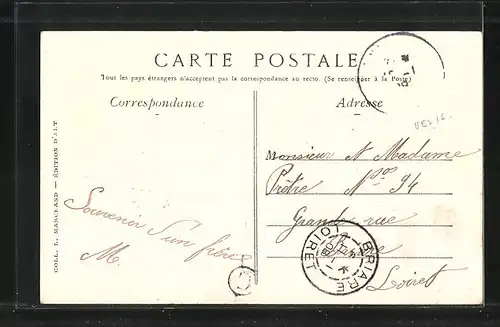 CARTE POSTALE
Tous les pays étrangers n'acceptent pas la correspondance au recto. (Se renseigner à la Poste)
Correspondance
Adresse
VES 16.
COLL. L. MARCHAND — ÉDITION D'ART
Monsieur & Madame
Prêtre Nos 94
Grande rue
Briare
Loiret
Souvenir d'un frère
M.
BRIARE
LOIRET